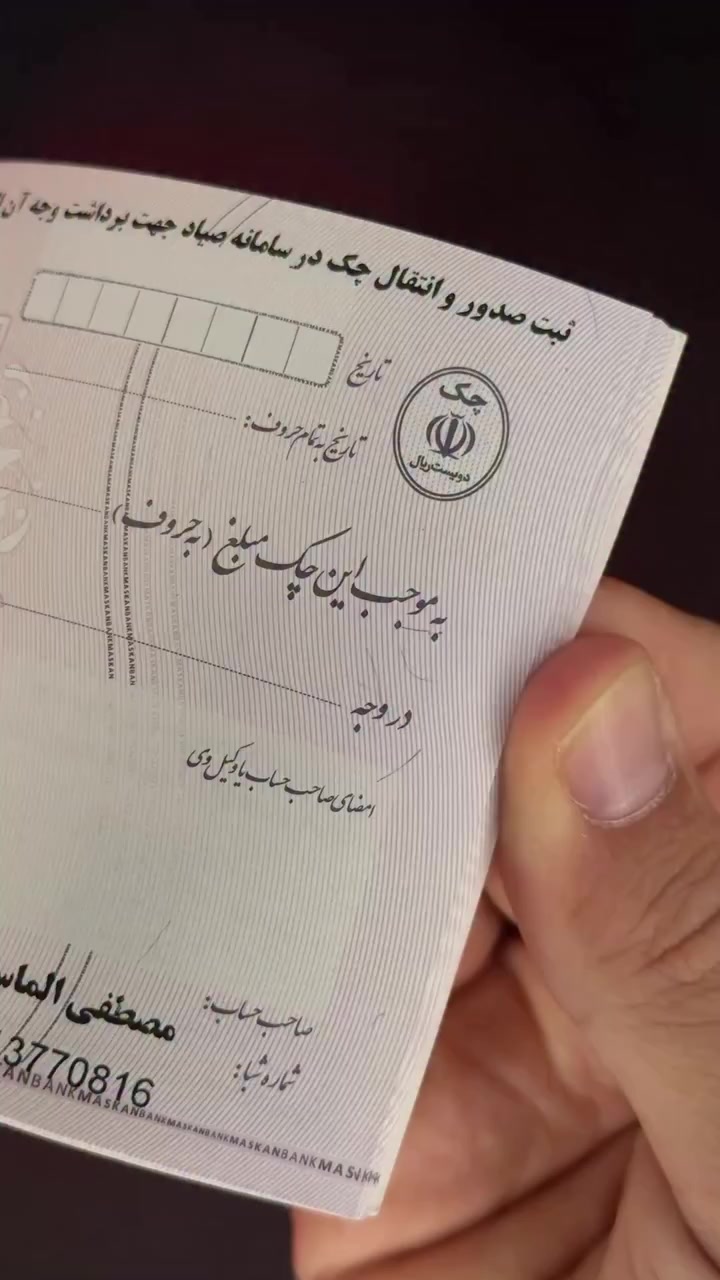 ثبت صدور و انتقال چک در سامانه صیاد جهت برداشت وجه آن
تاریخ
چک
دویست ریال
تاریخ به تمام حروف:
به موجب این چک مبلغ (به حروف)
در وجه
امضای صاحب حساب یا وکیل وی
صاحب حساب: مصطفی
شماره شبا: 3770816
BANKMASKANBANKMASKANBANKMASKANBANKMASKANBANK